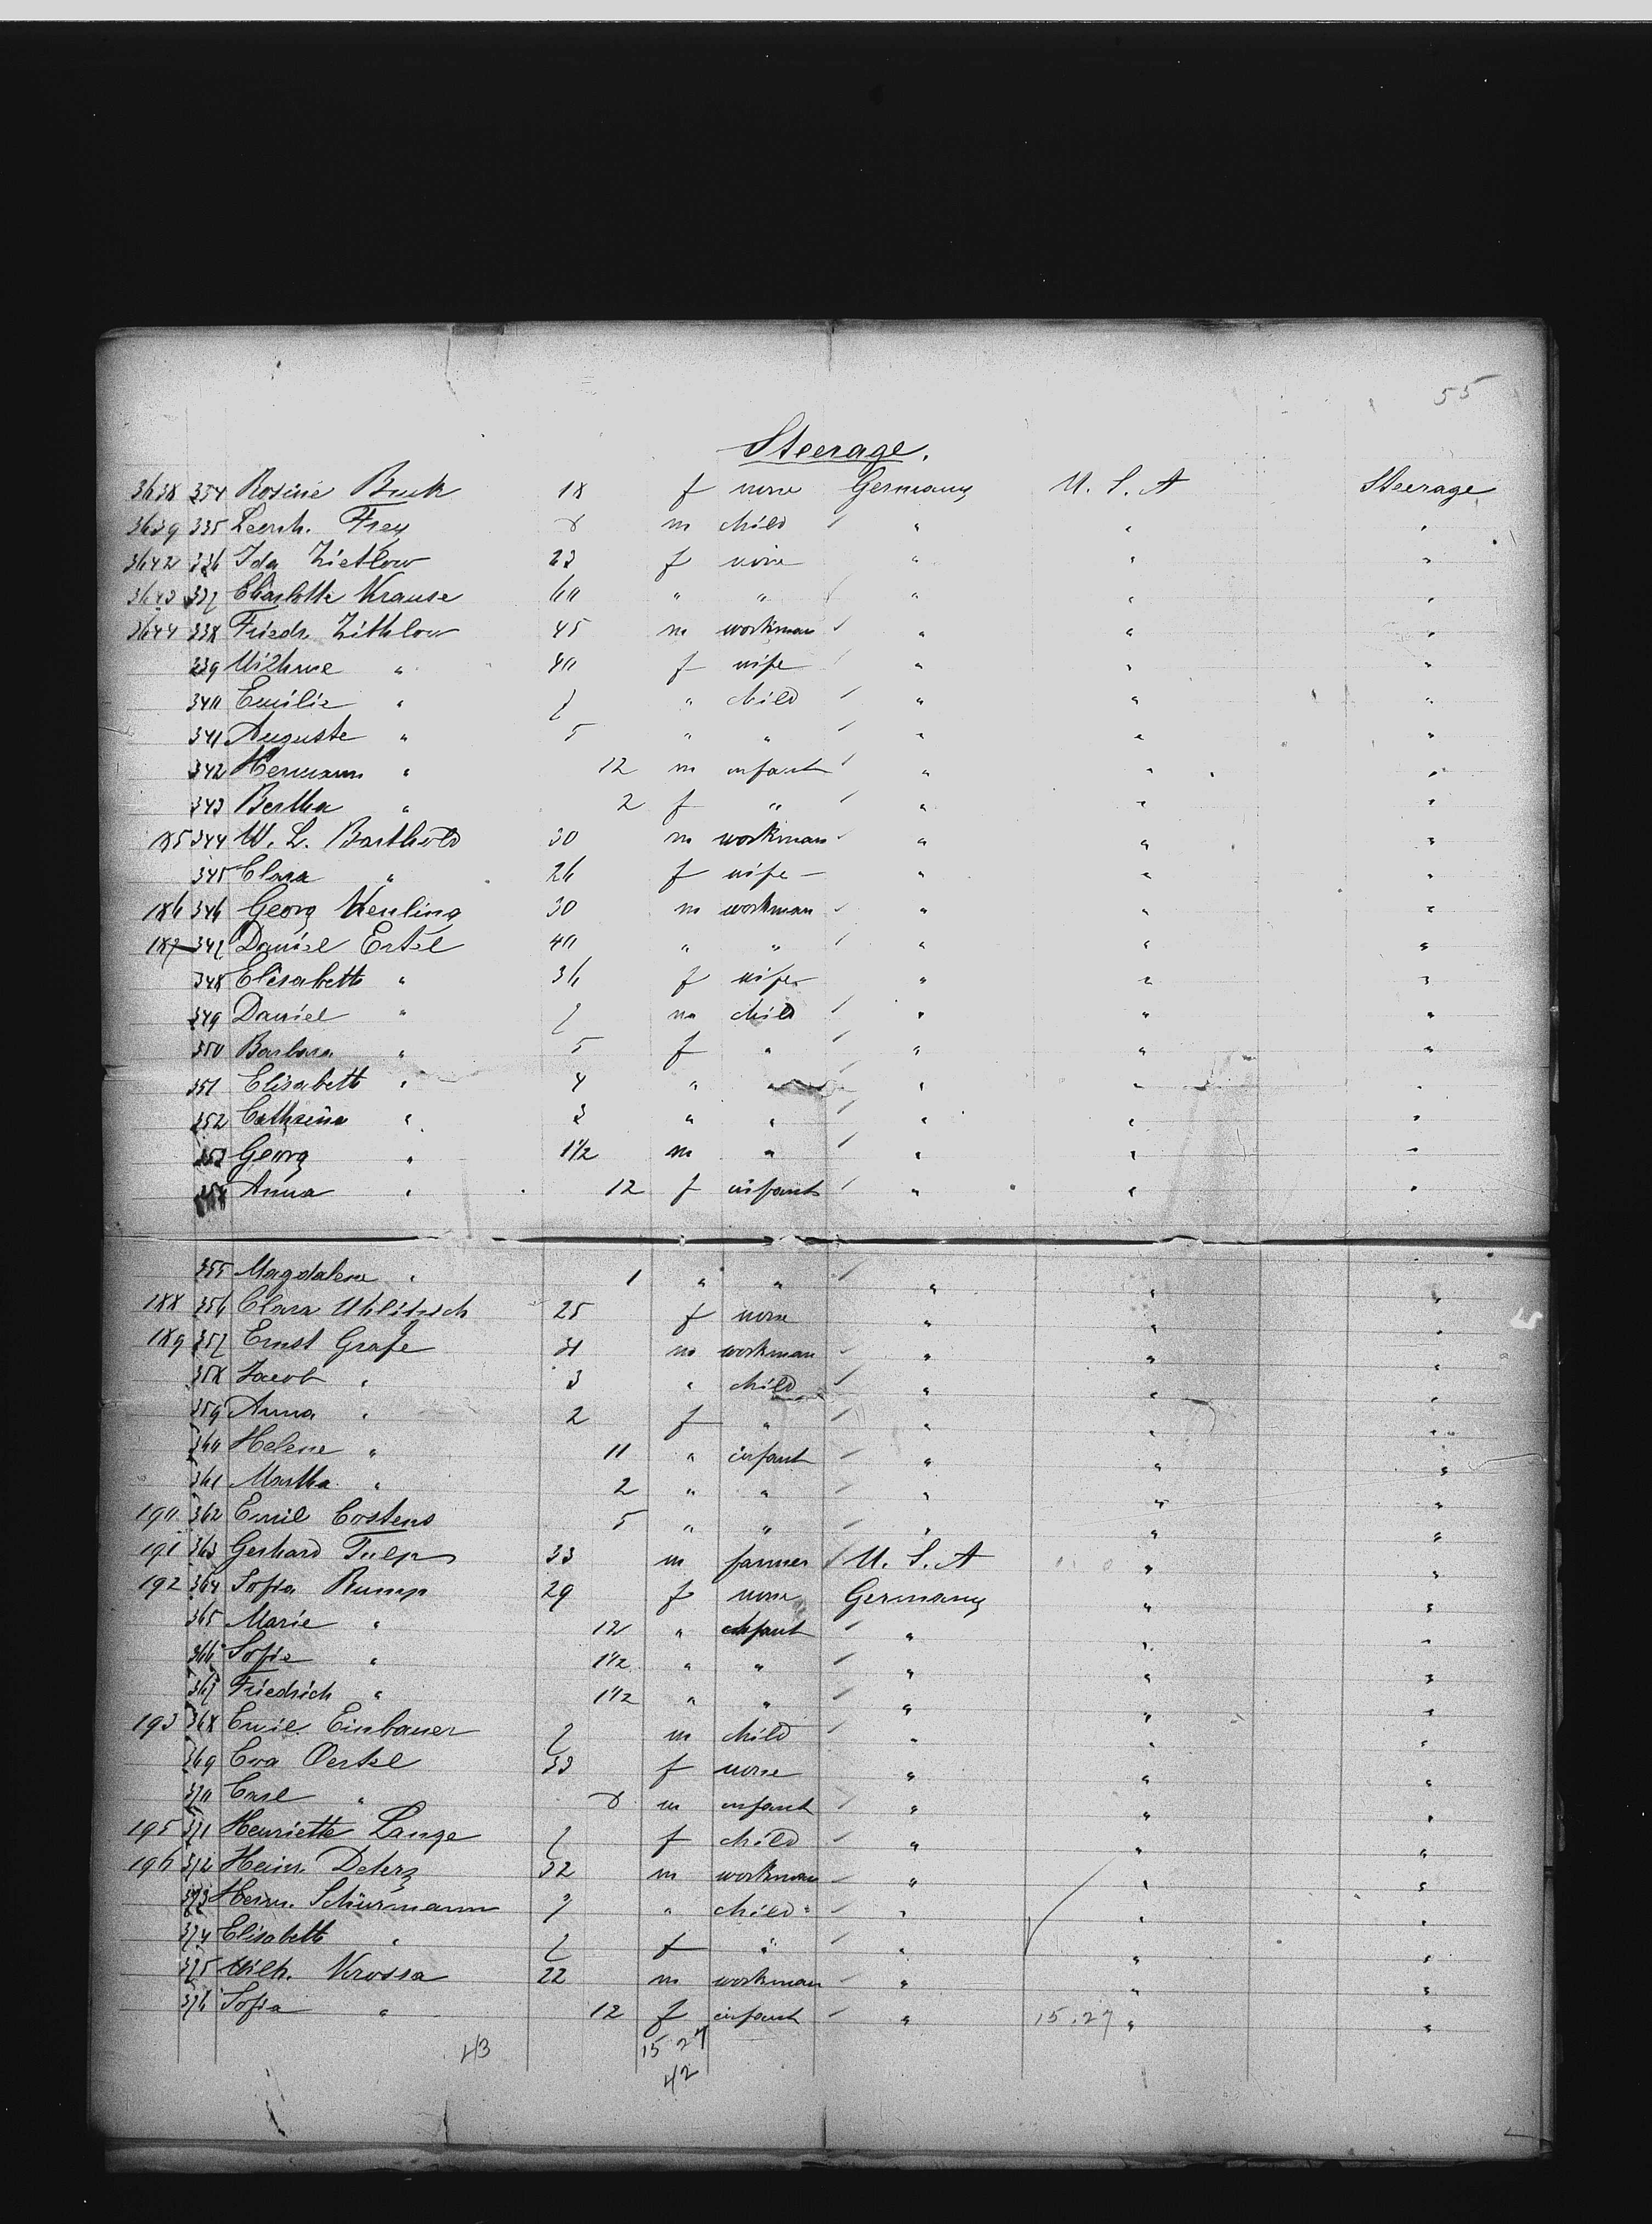 55
Steerage.
3638 334 Rosine Buck 18 f none Germany U. S. A Steerage
3639 335 Leonh. Frey 8 m child " " "
3642 336 Ida Zietlow 23 f none " " "
3643 337 Charlotte Krause 60 " " " " "
3644 338 Friedr. Zithlow 45 m workman " " "
339 " 40 f wife " " "
340 Emilie " 7 " child " " "
341 Auguste " 5 " " " " "
342 Hermann " 12 m infant " " "
343 Bertha " 2 f " " " "
185 344 W. L. Barthold 30 m workman " " "
345 Clara " 26 f wife " " "
186 346 Georg Keuling 30 m workman " " "
187 347 Daniel Ertel 40 " " " " "
348 Elisabeth " 36 f wife " " "
349 Daniel " 7 m child " " "
350 Barbara " 5 f " " " "
351 Elisabeth " 4 " " " " "
352 Cathrina " 3 " " " " "
353 Georg " 1 1/2 m " " " "
354 Anna " 12 f infant " " "
355 Magdalena " 1 " " " " "
188 356 Clara Uhlitzsch 25 f none " " "
189 357 Ernst Grafe 31 m workman " " "
358 Jacob " 3 " child " " "
359 Anna " 2 f " " " "
360 Helene " 11 " infant " " "
361 Martha " 2 " " " " "
190 362 Emil Costens 5 " " " " "
191 363 Gerhard Tulp 33 m farmer U. S. A " "
192 364 Sofia Rump 29 f none Germany " "
365 Marie " 12 " infant " " "
366 Sofie " 1 1/2 " " " " "
367 Friedrich " 1 1/2 " " " " "
193 368 Emil Einbauer 7 m child " " "
369 Eva Oertel 33 f none " " "
370 Carl " 8 m infant " " "
195 371 Henriette Lange 7 f child " " "
196 372 Heinr. Deterz 32 m workman " " "
373 Heinr. Schürmann 9 " child " " "
374 Elisabeth " 7 f " " " "
375 Wilh. Krossa 22 m workman " " "
376 Sofia " 12 f infant " 15.27 " "
43 15 27
42